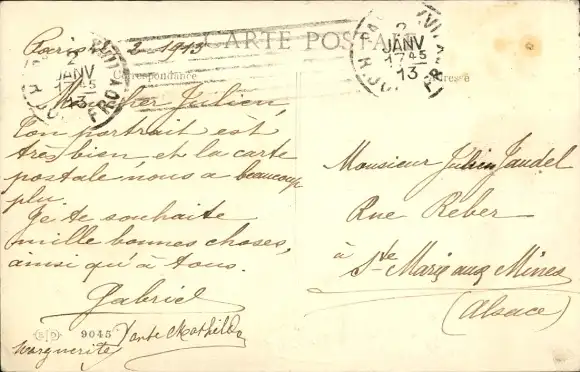 CARTE POSTALE
Correspondance
Adresse
2
JANV
17 45
13
2
JANV
17 45
13
Paris 2 1913
Mon cher Julien,
Ton portrait est
très bien, et la carte
postale nous a beaucoup
plu.
Je te souhaite
mille bonnes choses,
ainsi qu'à tous.
Gabriel
Tante Mathilde
Marguerite
9045
Monsieur Julien Jaudel
Rue Reber
à
Ste Marie aux Mines
(Alsace)